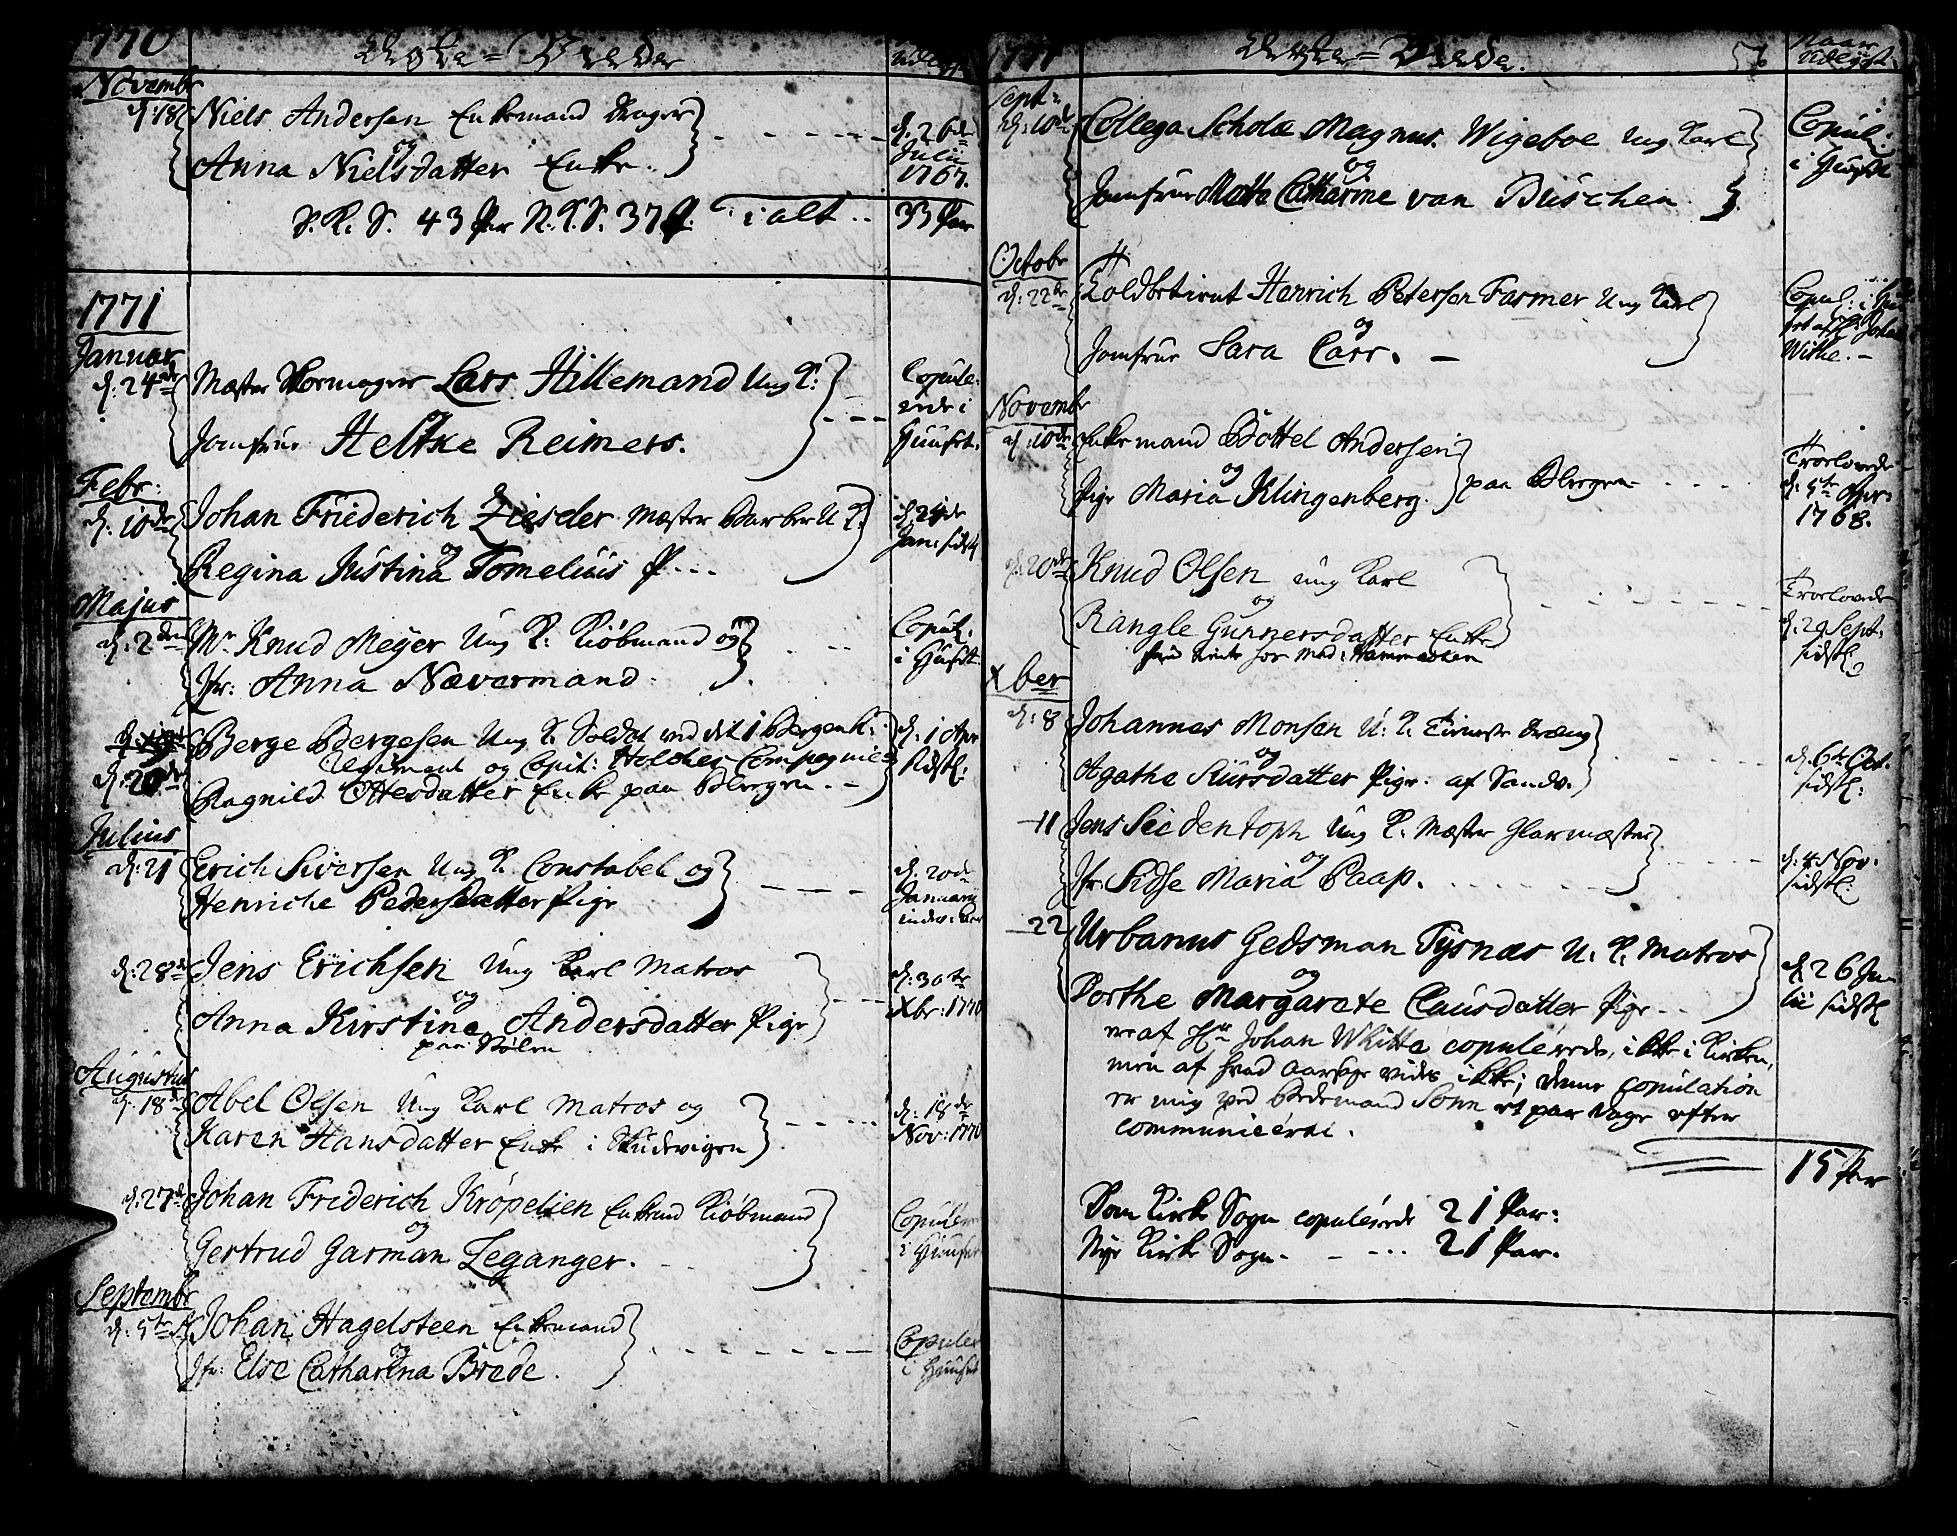 1770
Novembr
d: 18 Niels Andersen Enkemand Drager
og
Anna Nielsdatter Enke.
d. 26de
Julii
1767.
D. K. S. 43 Par N. K. S. 37 P. i alt .. 33 Par
1771
Januar
d. 24de Mæster Skomager Lars Hillemand Ung K:
og
Jomfrue Heltke Reimers.
Copule-
rede i
Huuset.
Febr:
d. 10de Johan Friederich Ziesler Mæster Barber U K.
og
Regina Justina Tomelius P...
d. 24de
Jan: sidstl
Majus
d. 2den Mr Knud Meyer Ung K. Kiöbmand og
Jfr: Anna Nævermand.
Copul.
i Huuset
d. 20de Berge Bergesen Ung K. Soldat ved det 1 Bergenh.
Regiment og Capit: Holches Compagnie
Ragnild Ottersdatter Enke paa Bergen.
d. 1 Apr
sidstl:
Julius
d: 21 Erich Siversen Ung K. Constabel og
Henriche Pedersdatter Pige
d. 20de
Januarii
d. 28de Jens Erichsen Ung Karl Matros
og
Anna Kirstina Andersdatter Pige
paa Nølen
d. 30te
Xbr: 1770
Augustus
d. 18de Abel Olsen Ung Karl Matros og
Karen Hansdatter Enke i Skudevigen
d. 18de
Nov: 1770
d. 27de Johan Friderich Kröpelien Enkemd Kiöbmand
og
Gertrud Garman Leganger.
Copulered
i Huuset
Septembr
d. 5te Johan Hagelsteen Enkemand
og
Jfr. Else Catharina Brede.
Copuler
i Huuset
1771
Naar
Sept:
d. 10de Collega Scholæ Magnus Wigeboe Ung Karl
og
Jomfrue Mætta Catharine van Büschen.
Copul.
i Huuset
Octobr
d: 22de Toldbetient Henrich Petersen Farmer Ung Karl
og
Jomfrue Sara Carr. —
Copul: i Huu
set af Hr Johan
Withe. —
Novembr
d: 10de Enkemand Böttel Andersen
og paa Bergen
Pige Maria Klingenberg.
Trorlovede
d. 5te Apr:
1768.
d. 20de Knud Olsen ung Karl
og
Rangle Gunnersdatter Enke
Trorlovede
d. 29 Sept.
sidstl.
Xber
d: 8 Johannes Monsen U: K. Tieneste Dreng
og
Agathe Siursdatter Pige. af Sandv.
d. 6te Oct.
sidstl:
-11 Jens Seidentoph Ung K. Mæster Glarmæster
og
Jfr. Sidse Maria Paap.
d. 4 Nov.
sidstl:
22 Urbanus Gedsman Tysnæs U. K. Matros
og
Dorthe Margarete Clausdatter Pige..
d. 26 Ju-
lii sidstl
er af Hr Johan Whitte copulerede, ikke i Kirken,
men af hvad Aarsage vides ikke; denne copulation
er mig ved Bedemand Sønn et par Dage efter
communiceret.
15 Par
Dom Kirke Sogn copulerede 21 Par:
Nye Kirke Sogn - - ... 21 Par.